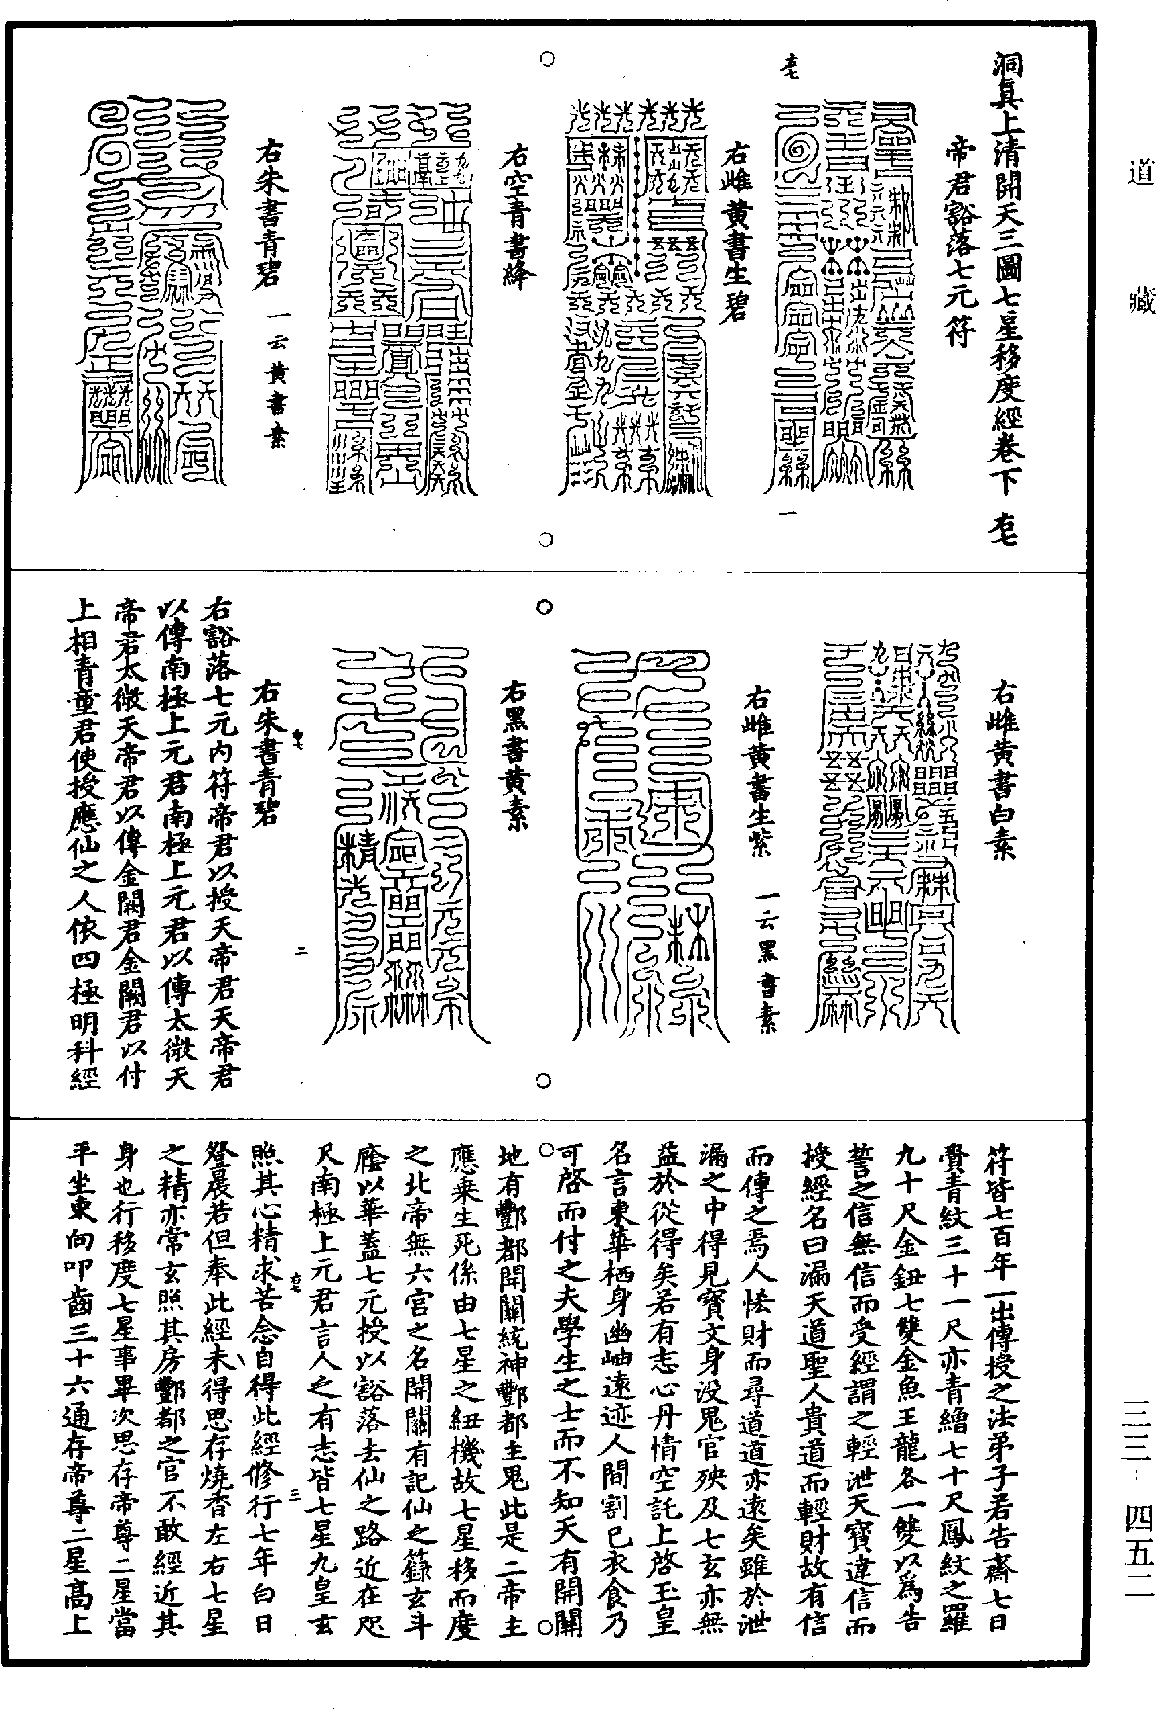 道藏
三三·四五二
洞真上清開天三圖七星移度經卷下
帝君豁落七元符
右雌黃書生碧
右空青書絳
右朱書青碧 一云黃書素
一
右雌黃書白素
右雌黃書生紫 一云黑書素
右黑書黃素
右朱書青碧
二
右豁落七元內符帝君以授天帝君天帝君
以傳南極上元君南極上元君以傳太微天
帝君太微天帝君以傳金闕君金闕君以付
上相青童君使授應仙之人依四極明科經
符皆七百年一出傳授之法弟子君告齋七日
賫青紋三十一尺亦青繒七十尺鳳紋之羅
九十尺金鈕七雙金魚玉龍各一雙以為告
誓之信無信而受經謂之輕泄天寶違信而
授經名曰漏天道聖人貴道而輕財故有信
而傳之焉人恡財而尋道道亦遠矣雖於泄
漏之中得見寶文身没鬼官殃及七玄亦無
益於從得矣若有志心丹情空託上啓玉皇
名言東華栖身幽岫遠迹人間割已衣食乃
可啓而付之夫學生之士而不知天有開關
地有酆都開關統神酆都主鬼此是二帝主
應乗生死係由七星之紐機故七星移而度
之北帝無六宮之名開關有記仙之籙玄斗
廕以華蓋七元授以豁落去仙之路近在咫
尺南極上元君言人之有志皆七星九皇玄
三
照其心精求苦念自得此經修行七年白日
登晨若但奉此經未得思存燒香左右七星
之精亦常玄照其房酆都之官不敢經近其
身也行移度七星事畢次思存帝尊二星當
平坐東向叩齒三十六通存帝尊二星高上